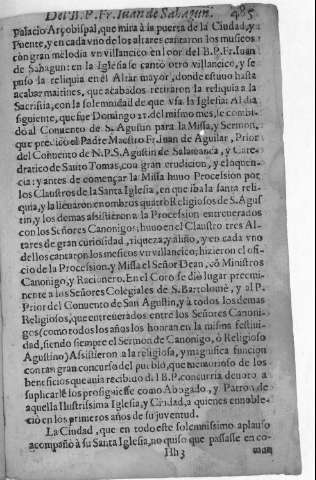 Del B. P. Fr. Iuan de Sahagun. 485
palacio Arçobispal, que mira à la puerta de la Ciudad, y a
Fuente, y en cada vno de los altares cantaron los musicos
con gran melodia vn villancico en loor del B. P. Fr. Iuan
de Sahagun: en la Iglesia se cantò otro villancico, y se
puso la reliquia en el Altar mayor, donde estuuo hasta
acabar maitines, que acabados retiraron la reliquia a la
Sacristia, con la solemnidad de que vsa la Iglesia: Al dia
siguiente, que fue Domingo 21. del mismo mes, le combi-
dò al Conuento de S. Agustin para la Missa, y Sermon,
que predicò el Padre Maestro Fr. Iuan de Aguilar, Prior
del Conuento de N. P. S. Agustin de Salamanca, y Cate-
dratico de Santo Tomas, con gran erudicion, y eloquen-
cia: y antes de començar la Missa huuo Procession por
los Claustros de la Santa Iglesia, en que iba la santa reli-
quia, y la lleuaron en ombros quatro Religiosos de S. Agus
tin, y los demas assistieron a la Procession entreuerados
con los Señores Canonigos; huuo en el Claustro tres Al-
tares de gran curiosidad, riqueza, y aliño, y en cada vno
dellos cantaron los musicos vn villancico; hizieron el ofi-
cio de la Procession, y Missa el Señor Dean, cõ Ministros
Canonigo, y Racionero. En el Coro se diò lugar preemi-
nente a los Señores Colegiales de S. Bartolomè, y al P.
Prior del Conuento de San Agustin, y à todos los demas
Religiosos, que entreuerados entre los Señores Canoni-
gos (como todos los años los honran en la misma festiui-
dad, siendo siempre el Sermon de Canonigo, ò Religioso
Agustino) Assistieron a la religiosa, y magnifica funcion
con tan gran concurso del pueblo, que memorioso de los
beneficios que auia recibido del B. P. concurria deuoto a
suplicarle los prosiguiesse como Abogado, y Patron de
aquella Ilustrissima Iglesia, y Ciudad, a quienes ennoble-
ciò en los primeros años de su juventud.
La Ciudad, que en todo este solemnissimo aplauso
acompañò à su Santa Iglesia, no quiso que passasse en co-
Hh 3